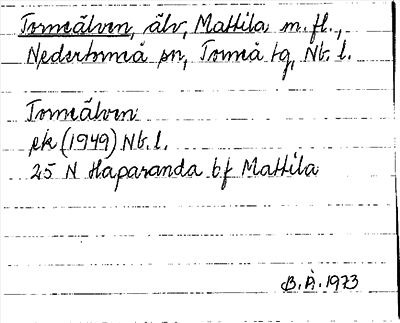 Torneälven, älv, Mattila m. fl.,
Nedertorneå sn, Torneå tg, Nb. l.
Torneälven
ek (1949) Nb. l.
25 N Haparanda bf Mattila
B. Å. 1973